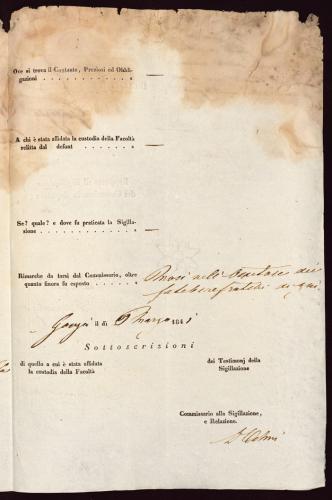 Ove si trova il Contante, Preziosi ed Obbli-
gazioni . . . . . . . . . . . . —
A chi è stata affidata la custodia della Facoltà
relitta dal defont . . . . . . . . —
Se? quale? e dove fu praticata la Sigilla-
zione . . . . . . . . . . . . . —
Rimarche da farsi dal Commissario, oltre
quanto finora fu esposto . . . . . .
fratelli di qui
il di Marzo 184
Sottoscrizioni
di quello a cui è stata affidata
la custodia della Facoltà
dei Testimonj della
Sigillazione
Commissario alla Sigillazione,
e Relazione.